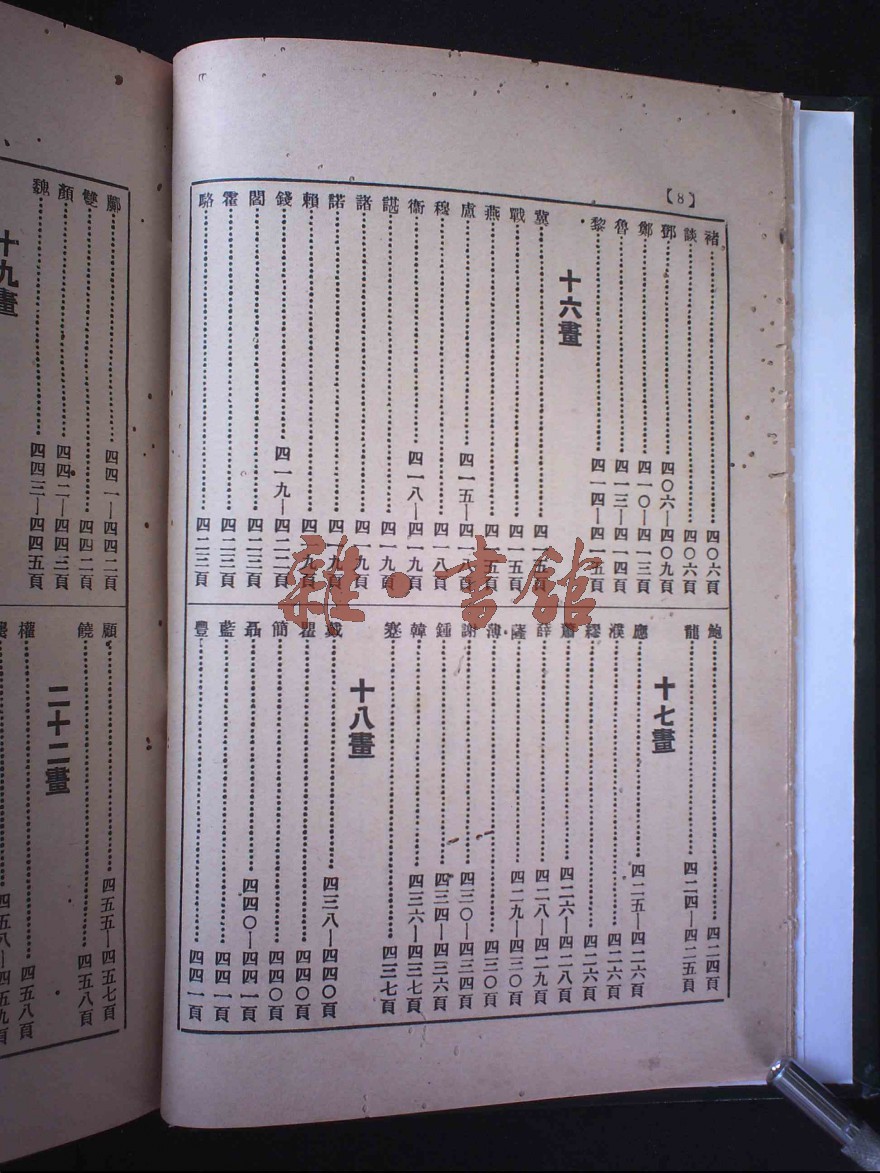 【8】
褚⋯⋯四〇六頁
談⋯⋯四〇六頁
鄧⋯⋯四〇六—四〇九頁
鄭⋯⋯四一〇—四一三頁
魯⋯⋯四一三—四一四頁
黎⋯⋯四一四—四一五頁
十六畫
冀⋯⋯四一五頁
戰⋯⋯四一五頁
燕⋯⋯四一五頁
盧⋯⋯四一五—四一八頁
穆⋯⋯四一八頁
衞⋯⋯四一八—四一九頁
諶⋯⋯四一九頁
諸⋯⋯四一九頁
諾⋯⋯四一九頁
賴⋯⋯四一九頁
錢⋯⋯四一九—四二二頁
閻⋯⋯四二三頁
霍⋯⋯四二三頁
駱⋯⋯四二三頁
鮑⋯⋯四二四頁
龍⋯⋯四二四—四二五頁
十七畫
應⋯⋯四二五—四二六頁
濮⋯⋯四二六頁
繆⋯⋯四二六頁
蕭⋯⋯四二六—四二八頁
薛⋯⋯四二八—四二九頁
薩⋯⋯四二九—四三〇頁
薄⋯⋯四三〇頁
謝⋯⋯四三〇—四三四頁
鍾⋯⋯四三四—四三六頁
韓⋯⋯四三六—四三七頁
蹇⋯⋯四三七頁
十八畫
戴⋯⋯四三八—四四〇頁
瞿⋯⋯四四〇頁
簡⋯⋯四四〇頁
聶⋯⋯四四〇—四四一頁
藍⋯⋯四四一頁
豐⋯⋯四四一頁
鄺⋯⋯四四一—四四二頁
雙⋯⋯四四二頁
顏⋯⋯四四二—四四三頁
魏⋯⋯四四三—四四五頁
十九畫
顧⋯⋯四五五—四五七頁
饒⋯⋯四五八頁
二十二畫
權⋯⋯四五八頁
四五八—四五九頁
雜·書館